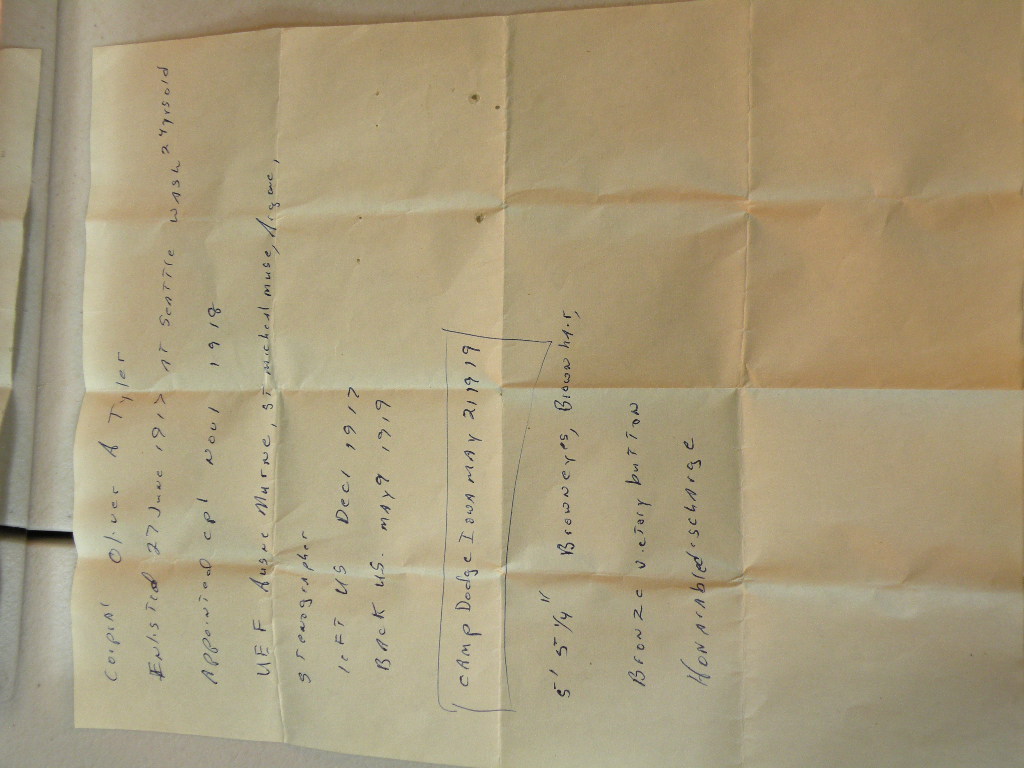 Corpral Oliver A Tyler
Enlisted 27 June 1917 AT SEATTLE WASH 24yrsold
Appointed cpl Nov 1 1918
Aisne Marne, ST micheal muse, Argone,
Stenographer
left US Dec 1 1917
BACK US. MAY 9 1919
CAMP Dodge IowA MAY 21 19 19
5' 5 1/4" Brown eyes, Brown hair,
Bronze victory button
HonarAble discharge